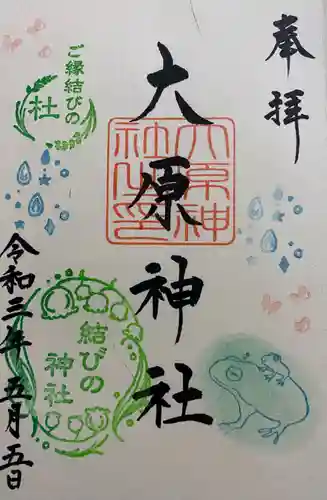 奉拝
大原神社
大原神
社之印
ご縁結びの
社
結びの
神社
令和三年五月五日